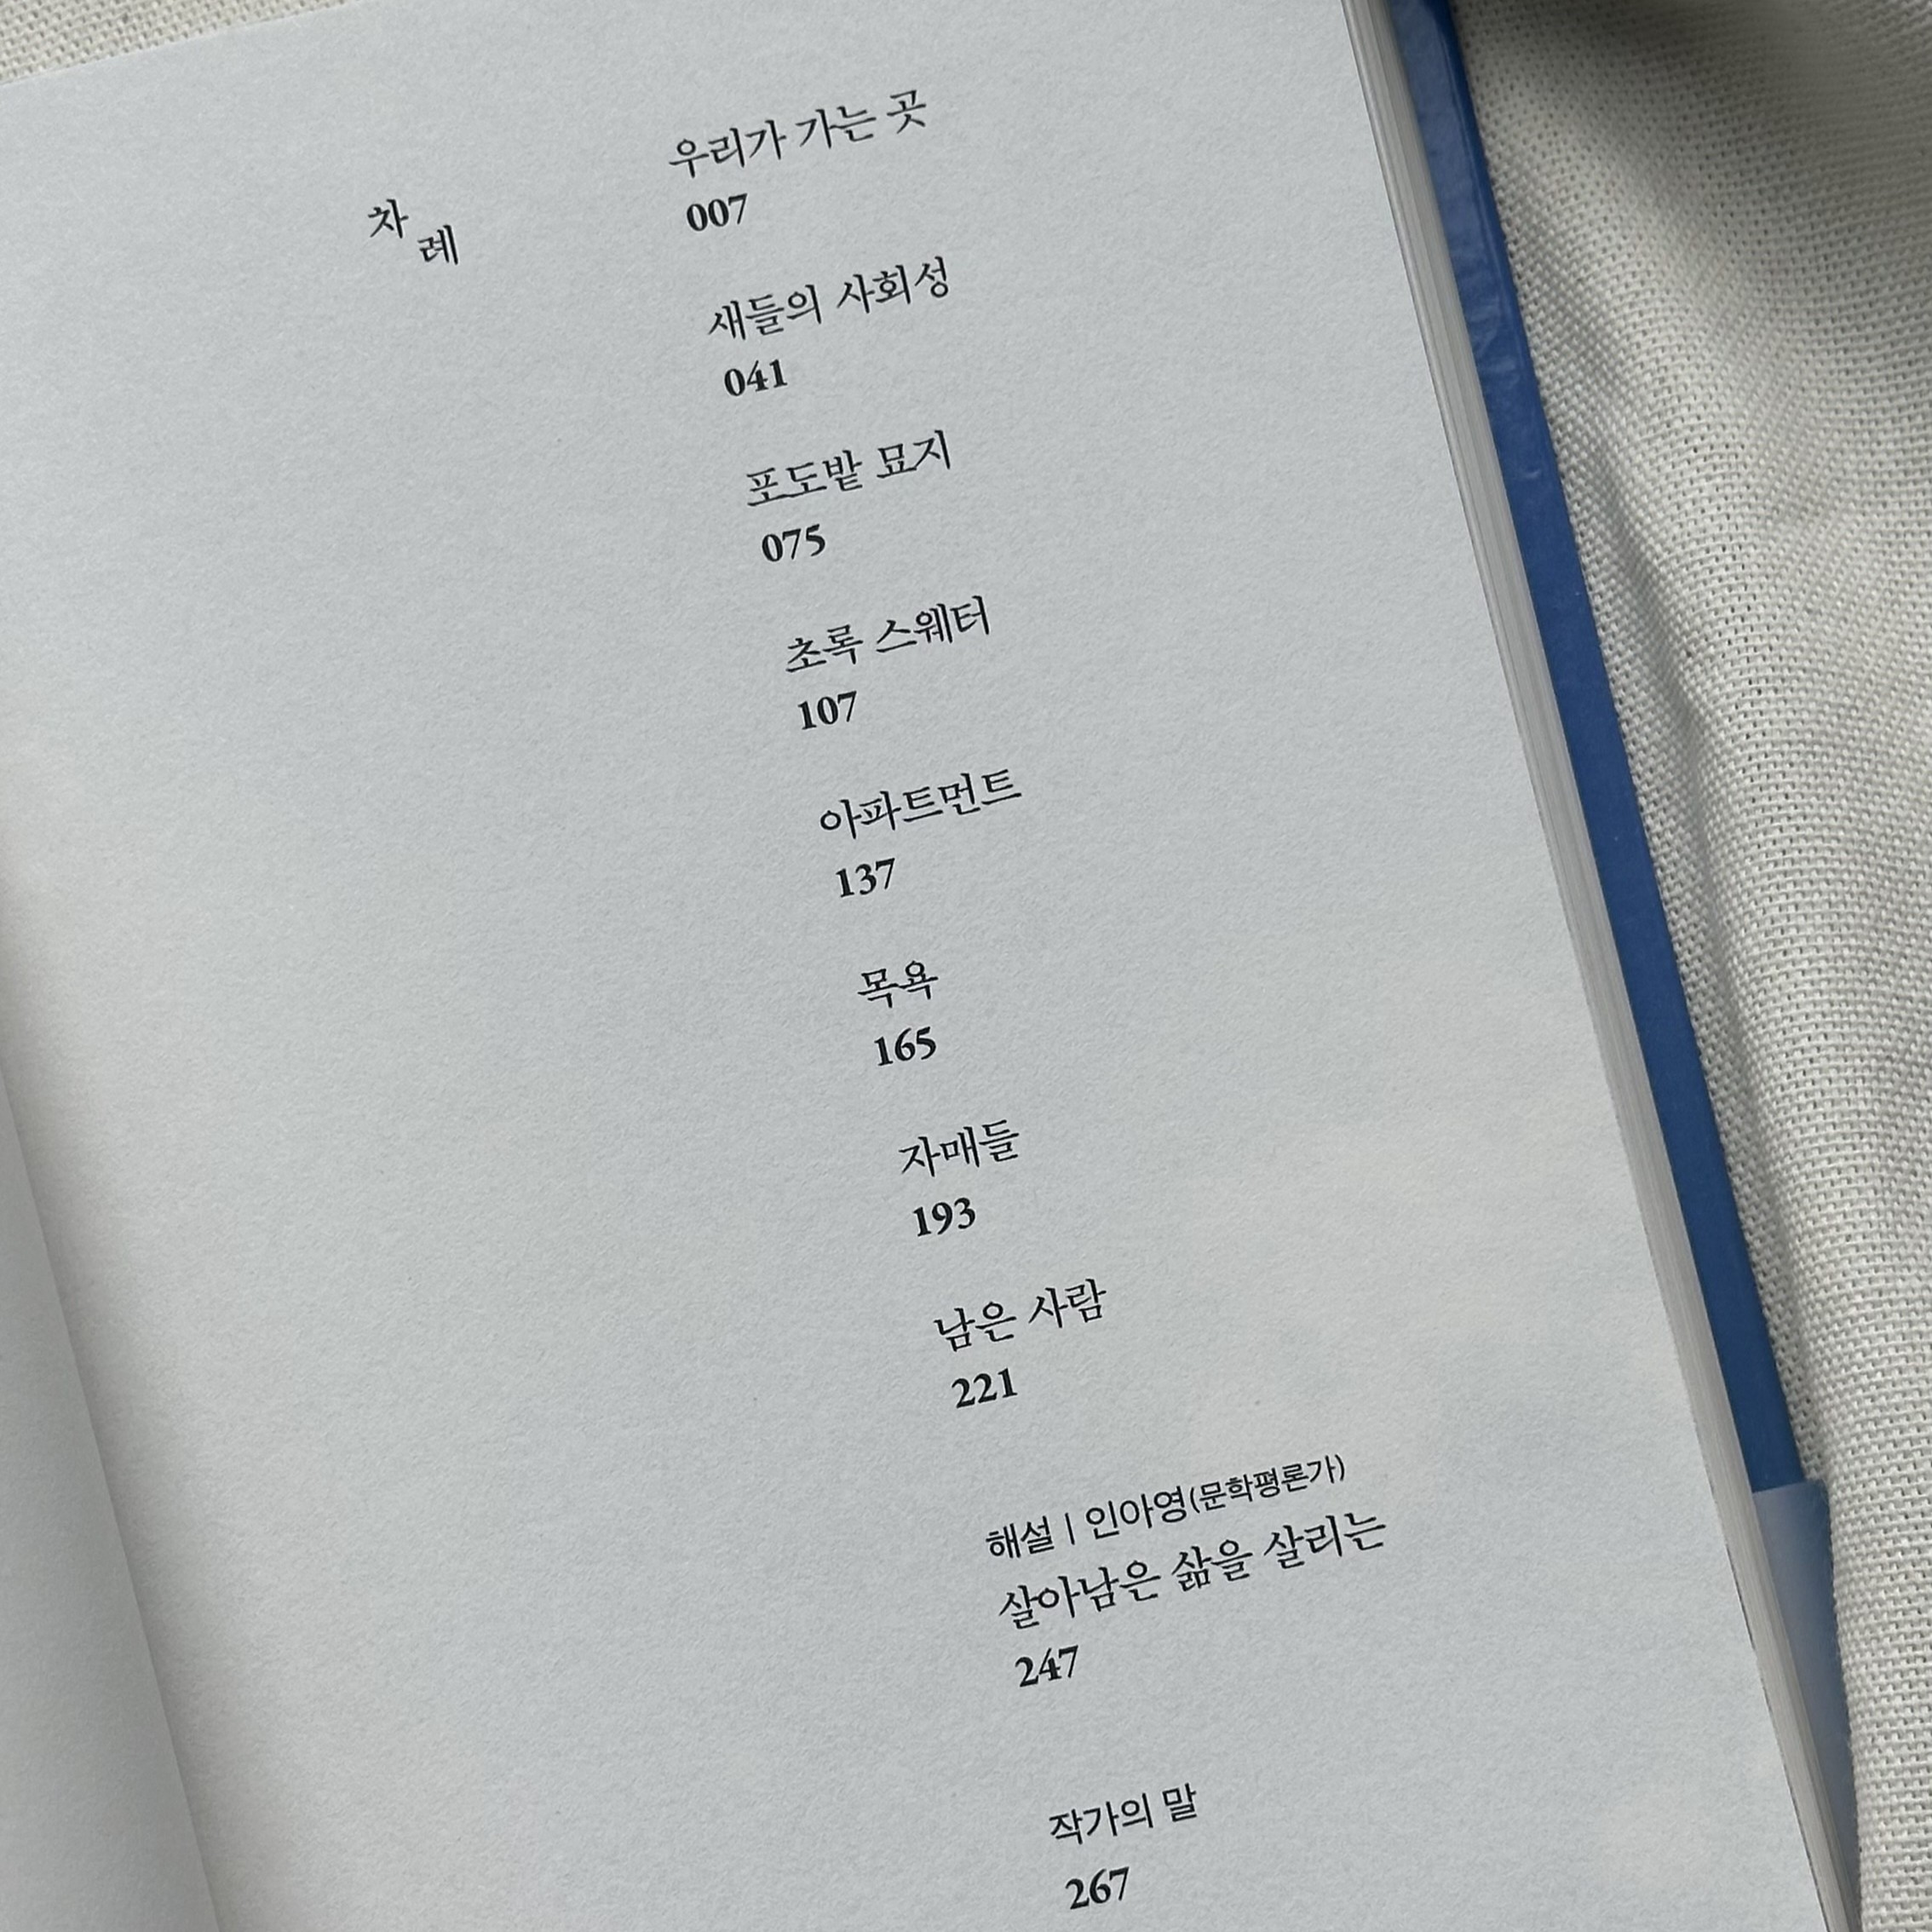 차례
우리가 가는 곳
007
새들의 사회성
041
포도밭 묘지
075
초록 스웨터
107
아파트먼트
137
목욕
165
자매들
193
남은 사람
221
해설 | 인아영(문학평론가)
살아남은 삶을 살리는
247
작가의 말
267